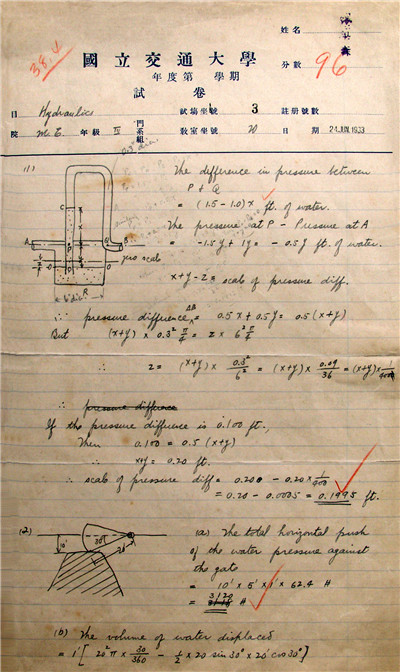 姓名
國立交通大學
38.4
年度第 學期
分數 96
試卷
目 Hydraulics 試場坐號 3 註冊號數
院 M.E. 年級 IV 門系組 教室坐號 70 日期 24 JUN 1933
(1)
The difference in pressure between
P & Q
= (1.5 - 1.0) x ft. of water.
The pressure at P - Pressure at A
= -1.5y + 1y = -0.5y ft. of water.
zero scale
x+y-z = scale of pressure diff.
∴ pressure difference AB = 0.5x + 0.5y = 0.5 (x+y)
But (x+y) × 0.3² π/4 = z × 6² π/4
∴ z = (x+y) × 0.3²/6² = (x+y) × 0.09/36 = (x+y) × 1/400
∴ pressure difference
If the pressure difference is 0.100 ft.,
Then 0.100 = 0.5 (x+y)
∴ x+y = 0.20 ft.
∴ scale of pressure diff = 0.200 - 0.20 × 1/400
= 0.20 - 0.0005 = 0.1995 ft.
(2)
10'
30°
20'
(a) The total horizontal push
of the water pressure against
the gate
= 10' × 5' × 1' × 62.4 #
= 3120 #
(b) The volume of water displaced
= 1' [ 20² π × 30/360 - 1/2 × 20 sin 30° × 20' cos 30° ]